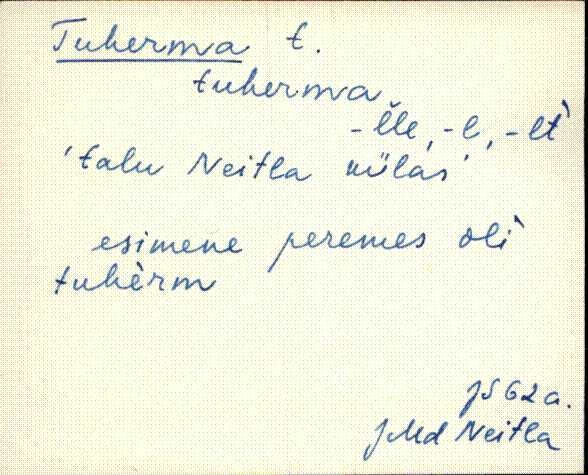 Tuherma t.
tuherma
-l̆le, -l, -lt̀
'talu Neitla külas'
esimene peremes olì
tuhèrm
JS 62 a.
JMd Neitla